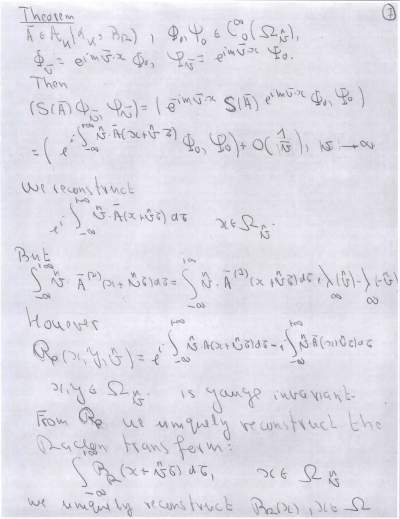 Theorem
7
Ā ∈ A_K(α_K, B_R), Φ₀, Ψ₀ ∈ C₀^∞(Ω_v̂),
Φ_v̄ = e^{imv̄·x} Φ₀, Ψ_v̄ = e^{imv̄·x} Ψ₀.
Then
(S(Ā) Φ_v̄, Ψ_v̄) = (e^{-imv̄·x} S(Ā) e^{imv̄·x} Φ₀, Ψ₀)
= (e^{i∫_{-∞}^{+∞} v̂·Ā(x+v̂τ)dτ} Φ₀, Ψ₀) + O(1/v), v → ∞
we reconstruct
e^{i∫_{-∞}^{+∞} v̂·Ā(x+v̂τ)dτ} x ∈ Ω_v̂.
But
∫_{-∞}^{+∞} v̂·Ā^{(2)}(x+v̂τ)dτ = ∫_{-∞}^{+∞} v̂·Ā^{(1)}(x+v̂τ)dτ + λ_∞(v̂) - λ_∞(-v̂)
However
R(x, y, v̂) = e^{i∫_{-∞}^{+∞} v̂·Ā(x+v̂τ)dτ - i∫_{-∞}^{+∞} v̂·Ā(y+v̂τ)dτ}
x, y ∈ Ω_v̂. is gauge invariant.
From R we uniquely reconstruct the
Radon transform:
∫_{-∞}^{+∞} B_R(x+v̂τ) dτ, x ∈ Ω_v̂
we uniquely reconstruct B_R(x), x ∈ Ω